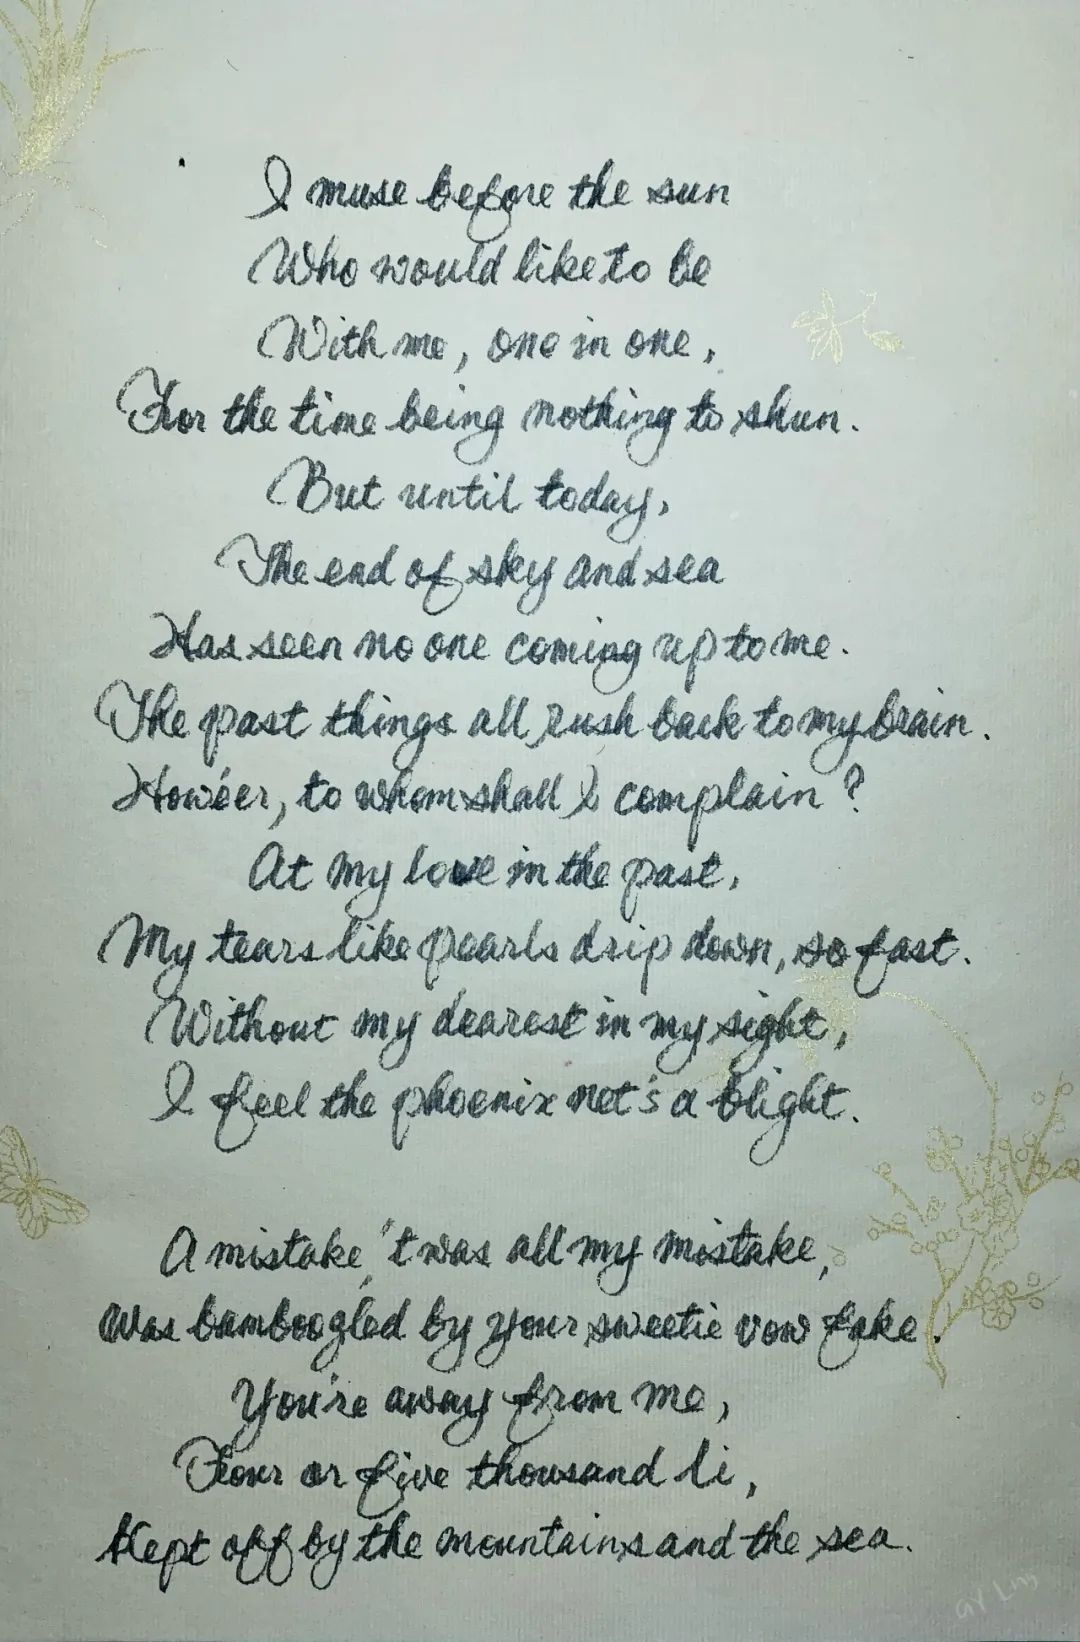 I muse before the sun
Who would like to be
With me, one in one,
For the time being nothing to shun.
But until today,
The end of sky and sea
Has seen no one coming up to me.
The past things all rush back to my brain.
Howéer, to whom shall I complain?
At my love in the past,
My tears like pearls drip down, so fast.
Without my dearest in my sight,
I feel the phoenix net's a blight.
A mistake, 't was all my mistake,
Was bamboogled by your sweetie vow fake.
You're away from me,
Four or five thousand li,
Kept off by the mountains and the sea.
GY Ling